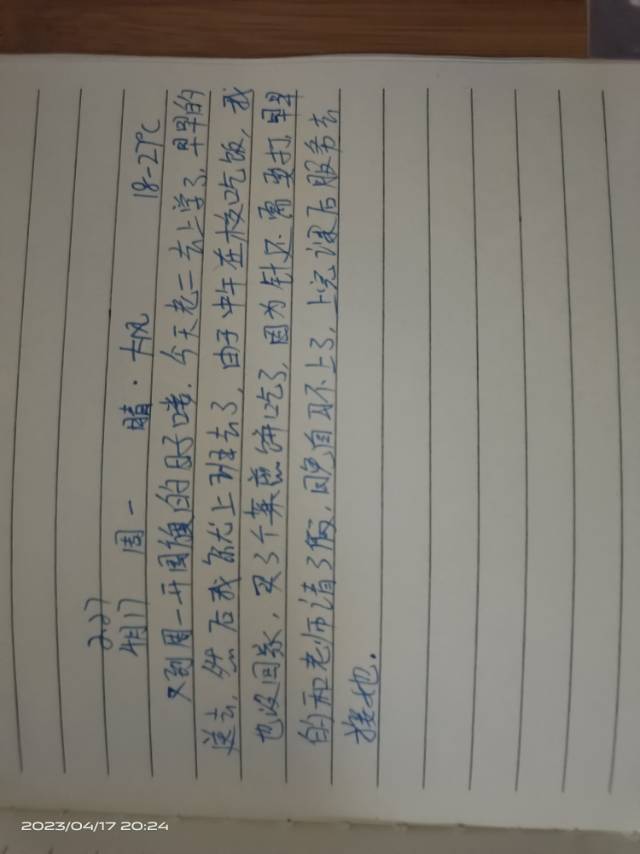 2.27
4月17 周一 晴·大风 18-27℃
又到周一开周值的日子喽.今天老二去上学了,早早的
送去,然后我就上班去了,由于中午在校吃饭,我
也没回家,买了个菜煎饼吃了,因为针还需要打,早早
的和老师请了假,晚自习不上了,上完课后服务去
接她.
2023/04/17 20:24